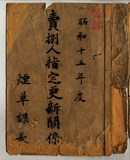 昭和十五年度
賣捌人指定更新關係
煙草課長